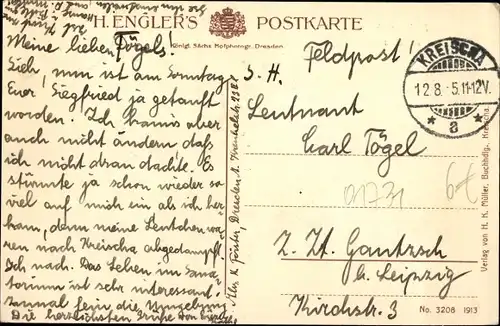 H. ENGLER'S POSTKARTE
Königl. Sächs. Hofphotogr. Dresden
Meine lieben Tögels!
Sieh, nun ist am Sonntag
Euer Siegfried ja getauft
worden. Ich kanns aber
auch nicht ändern daß
ich nicht dran dachte. Es
stürmte ja schon wieder so
viel auf mich ein als ich her
kam, denn meine Leutchen wa
ren nach Kreischa abgedampft.
Ich nach. Das Leben im Sana
torium ist sehr interessant.
zumal fein die Umgebung
Die herzlichsten Grüße von Eurer
Feldpost!
S. H.
Leutnant
Carl Tögel
Z. Zt. Gautzsch
b. Leipzig
Kirchstr. 3
KREISCHA
12.8. 5.11-12V.
* a *
01731
6€
Verlag von H. H. Müller, Buchhdlg., Kreischa.
No. 3208 1913